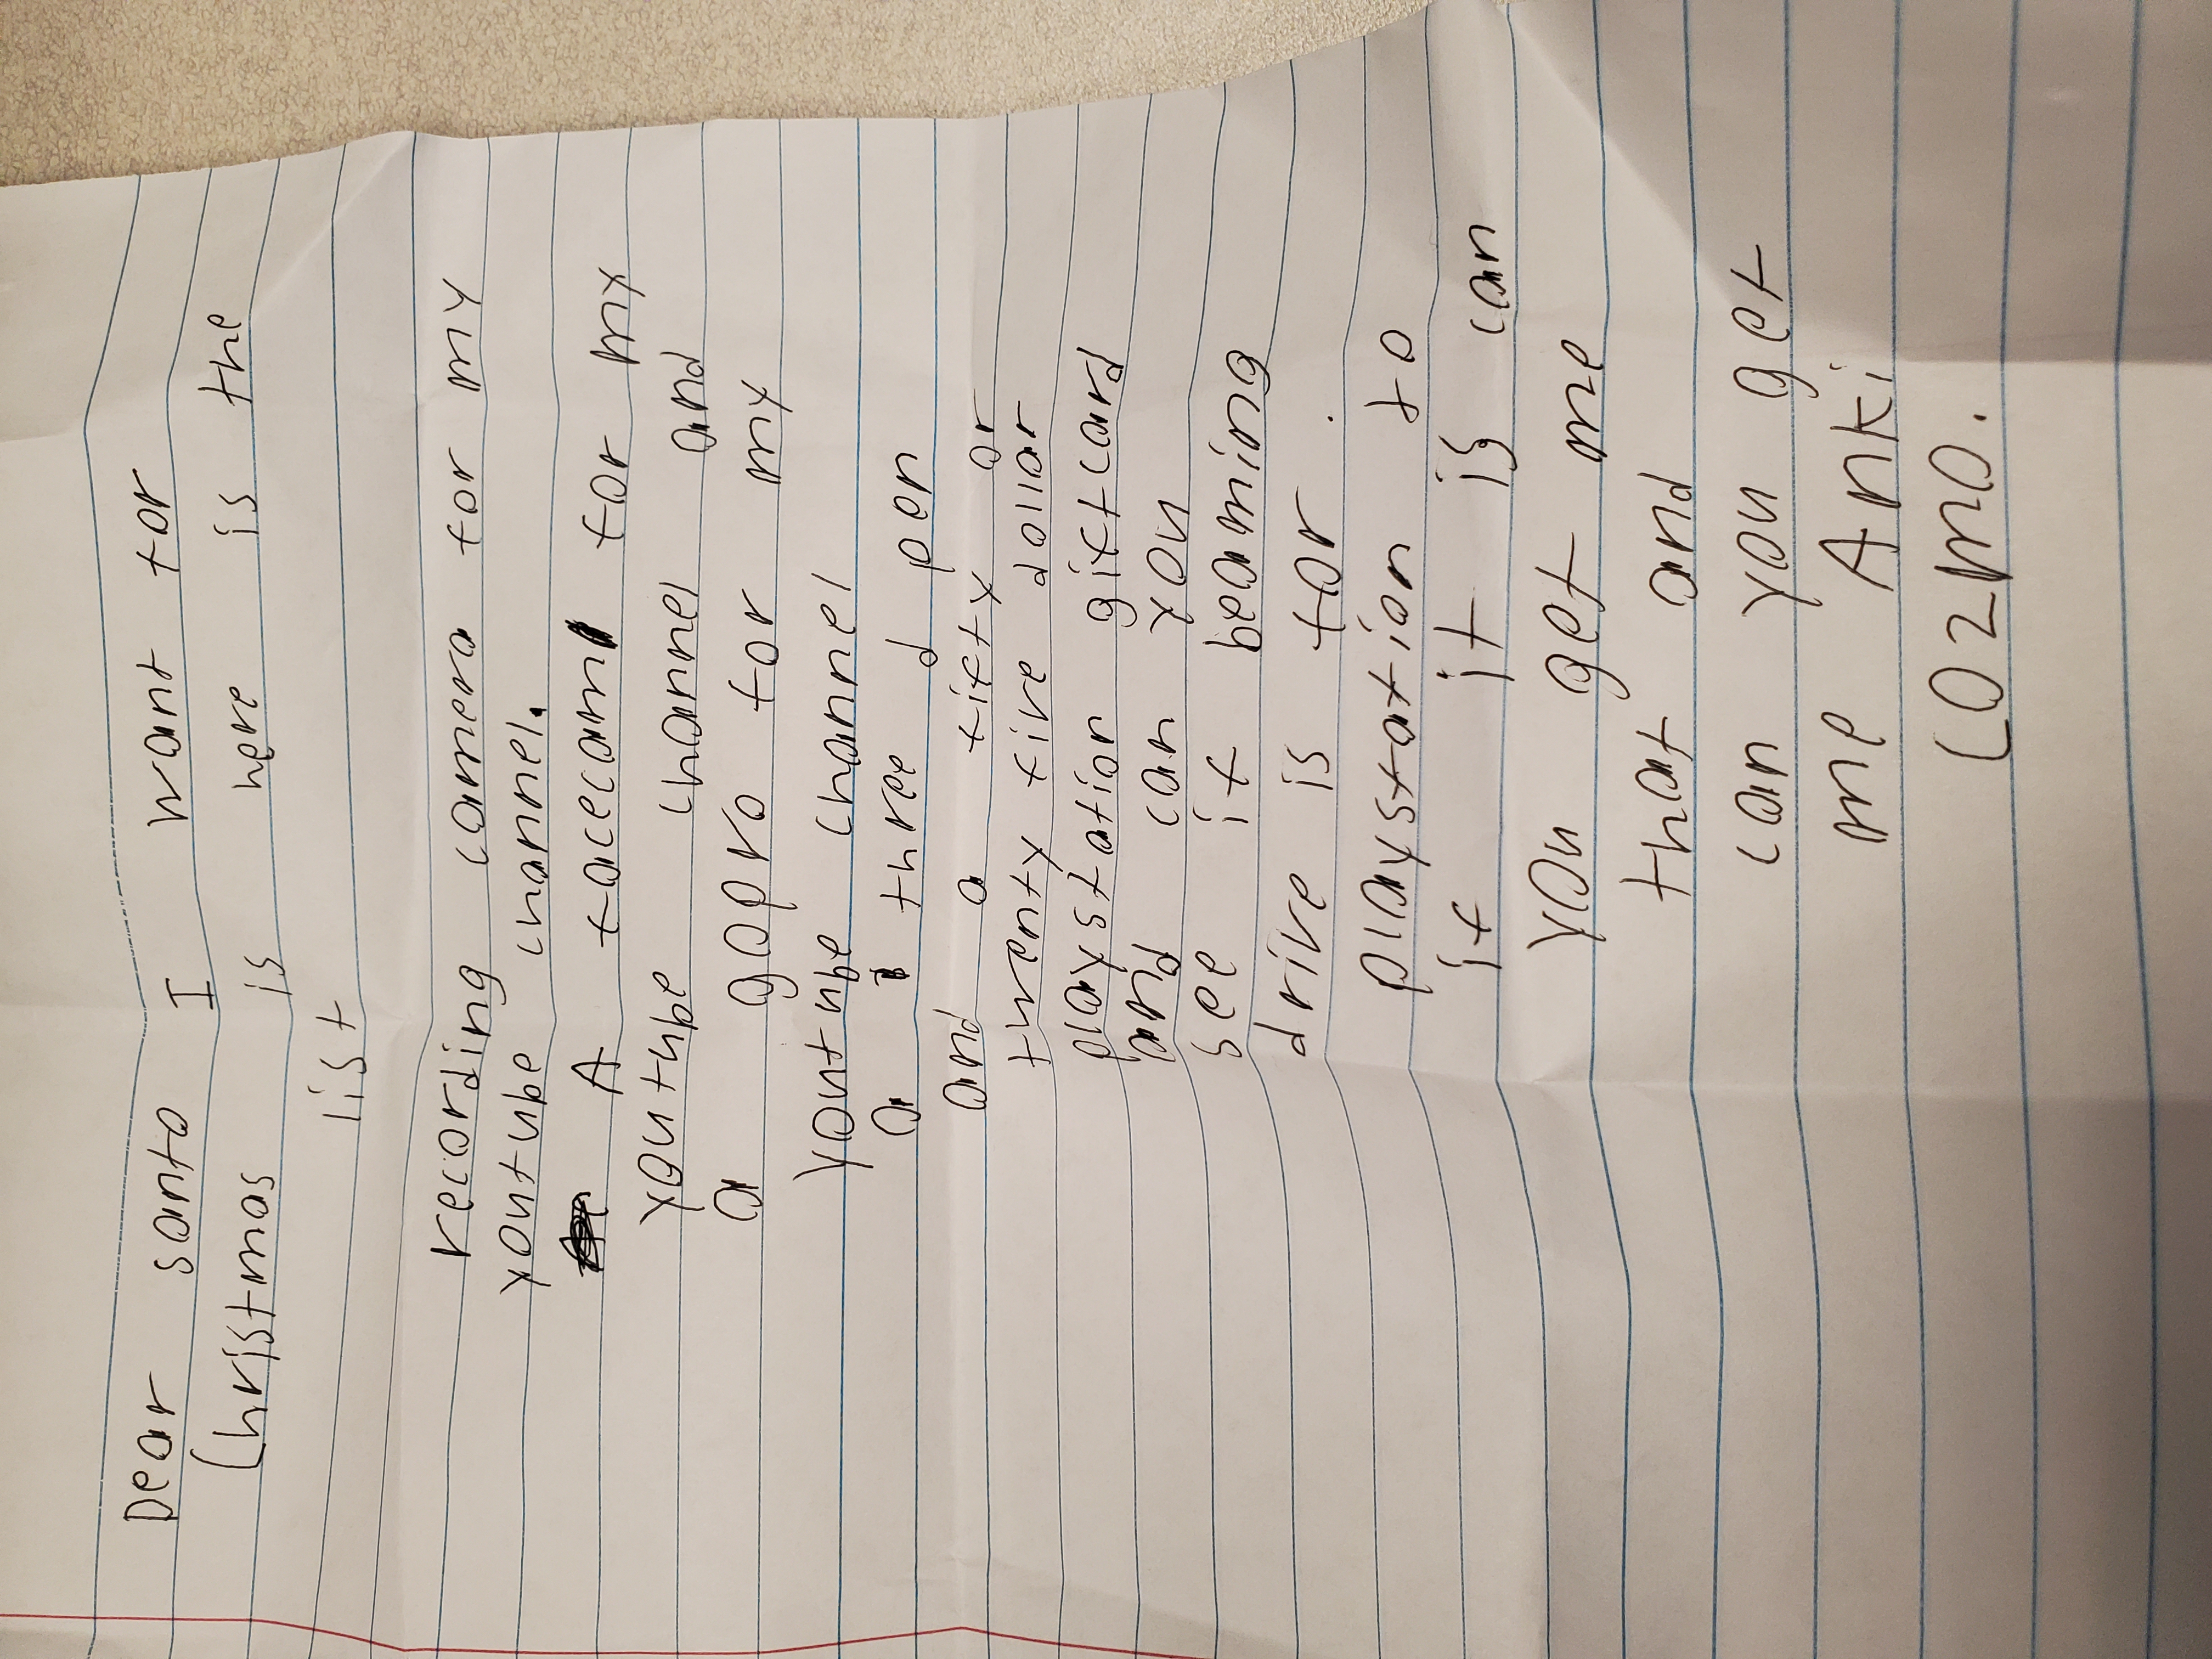 Dear santa I want for
Christmas is here is the
list
recording camera for my
youtube channel.
A facecam for my
youtube channel and
a gopro for my
youtube channel
a three d pen
and a fifty or
twenty five dollar
playstation gift card
and can you
see it beaming
drive is for.
playstation to
it it is can
you get me
that and
can you get
me Anki
Cozmo.